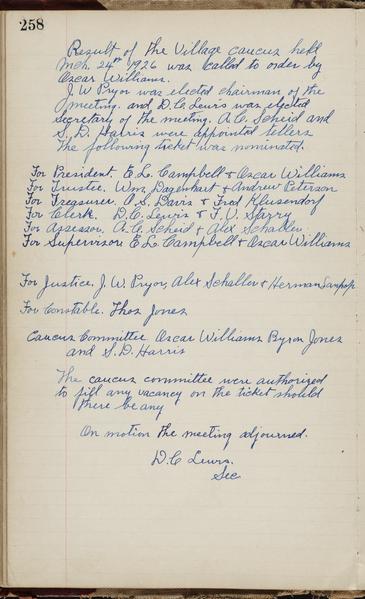 258
Result of the Village caucus held
Mch. 24th 1926 was called to order by
Oscar Williams.
J. W. Pryor was elected chairman of the
meeting. and D. C. Lewis was elected
secretary of the meeting. A. C. Scheid and
S. D. Harris were appointed tellers
The following ticket was nominated.
For President E. L. Campbell & Oscar Williams
For Trustee. Wm Dagenhart & Andrew Peterson
For Treasurer. O. S. Davis & Fred Klusendorf
For Clerk. D. C. Lewis & T. V. Starry
For Assessor. A. C. Scheid & Alex Schaller.
For Supervisor. E. L. Campbell & Oscar Williams
For Justice. J. W. Pryor, Alex Schaller & Herman
For Constable. Thos Jones
Caucus Committee Oscar Williams Byron Jones
and S. D. Harris
The caucus committee were authorized
to fill any vacancy on the ticket should
there be any
On motion the meeting adjourned.
D. C Lewis.
Sec